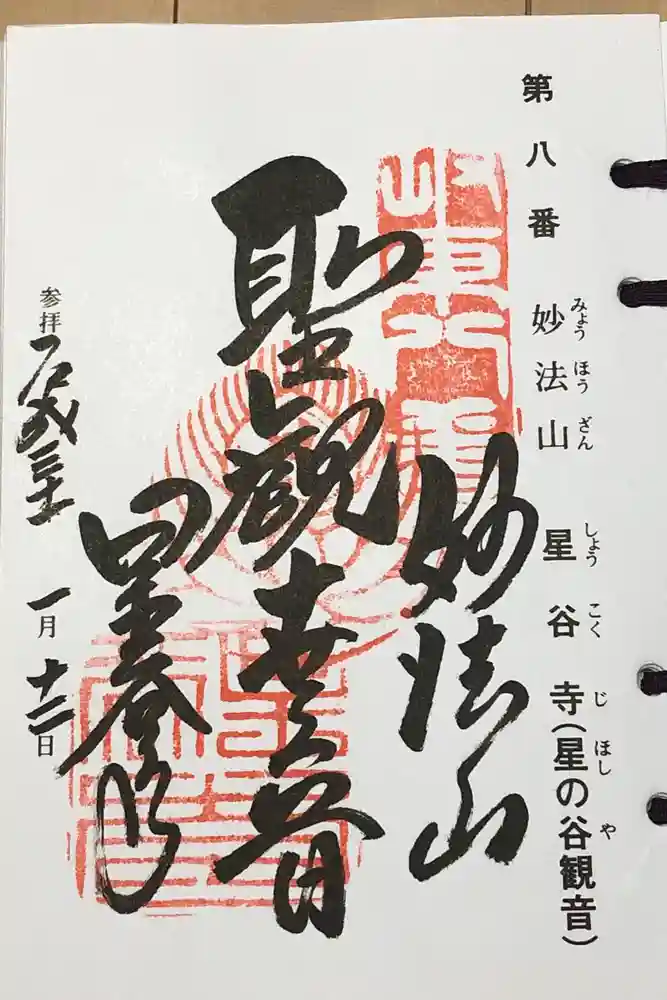 第八番 妙法山 星谷寺(星の谷観音)
みょう ほう ざん しょう こく じ ほし や
坂東八番
妙法山
聖観世音
星谷寺
参拝 平成三十 一月十二日